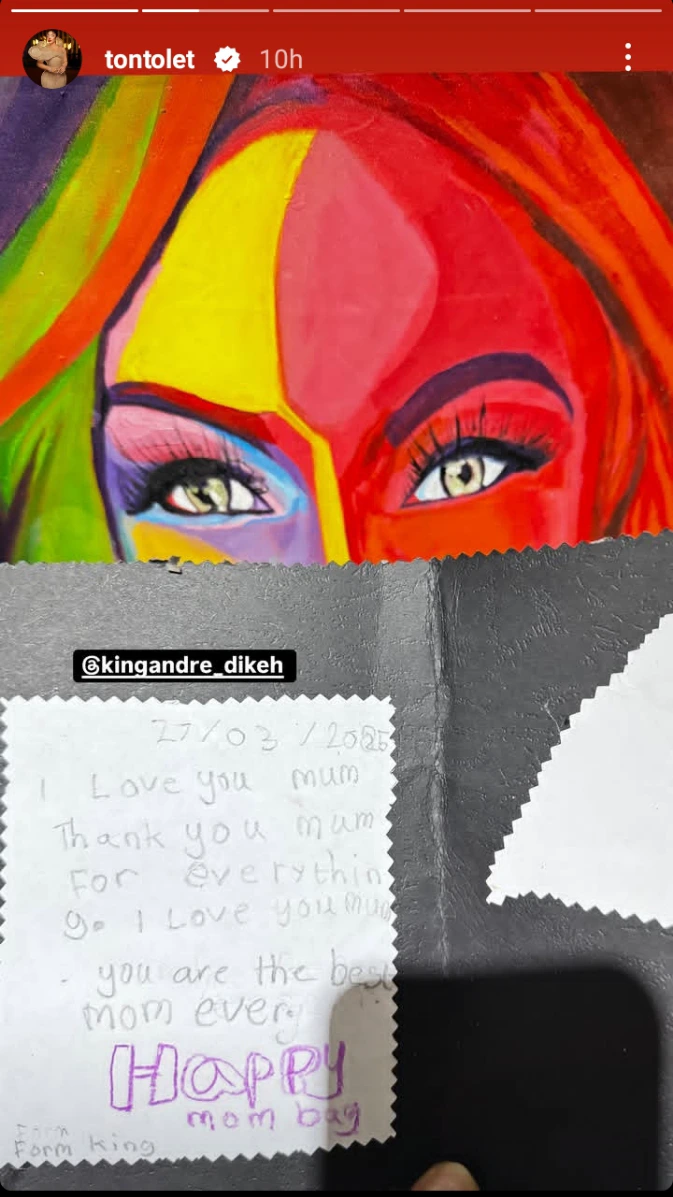 tontolet 10h
@kingandre_dikeh
27/03/2025
I Love you mum
Thank you mum
For everythin
g. I Love you mum
. you are the best
mom every
Happy
mom bay
Form
Form king